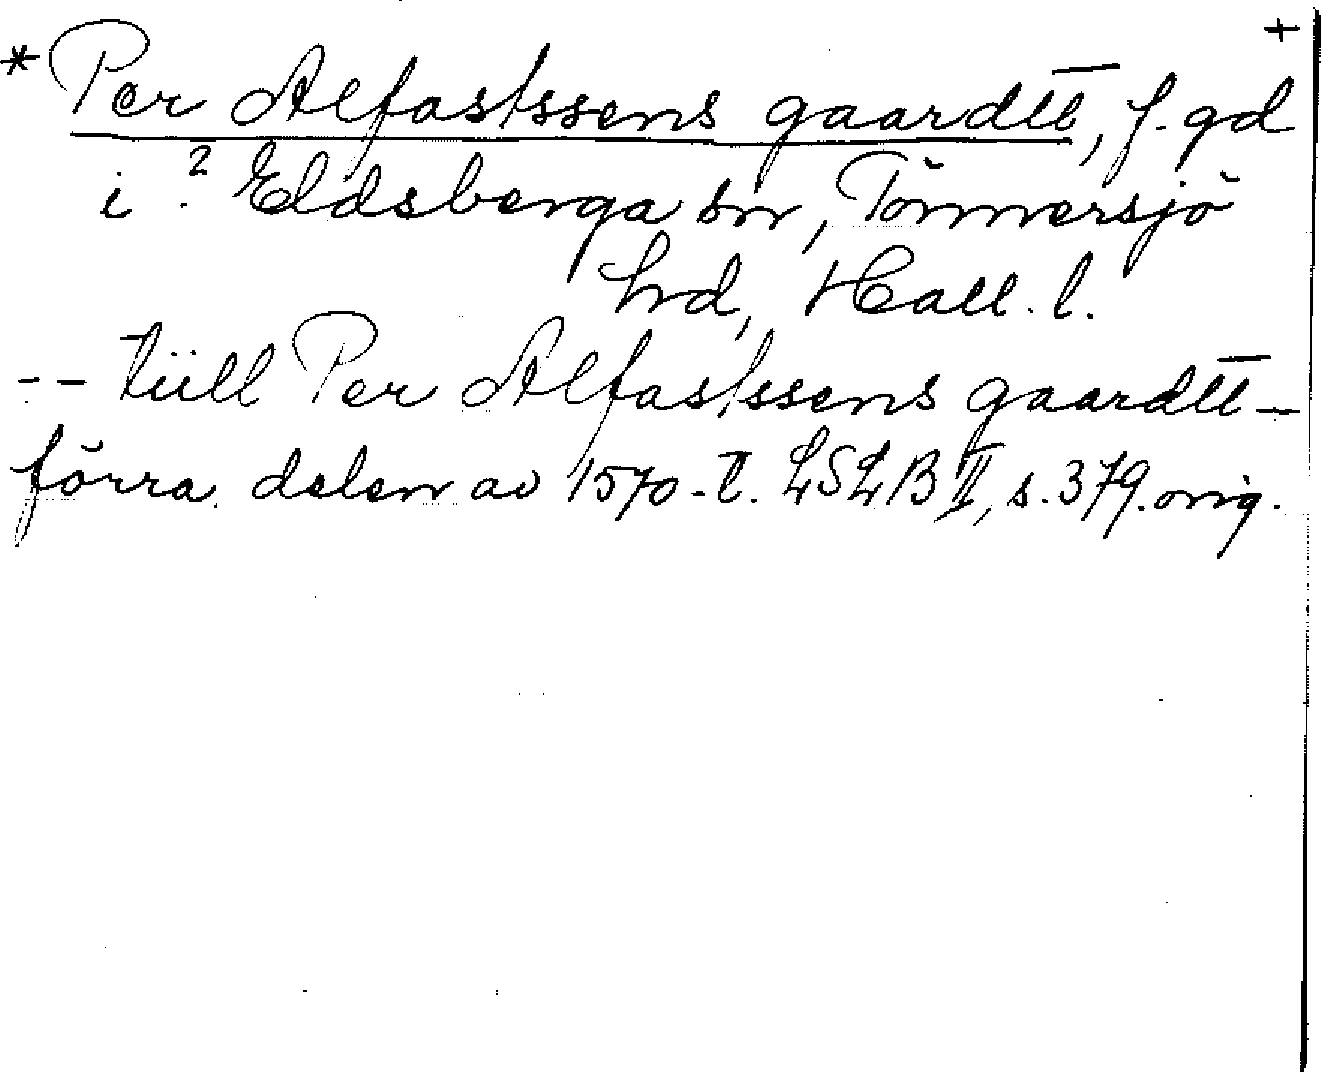 +
* Per Alfastssens gaardtt, f. gd
i ? Eldsberga sn, Tönnersjö
hd, Hall. l.
-- tüll Per Alfastssens gaardtt –
förra delen av 1570-t. LSLB II, s. 379. orig.